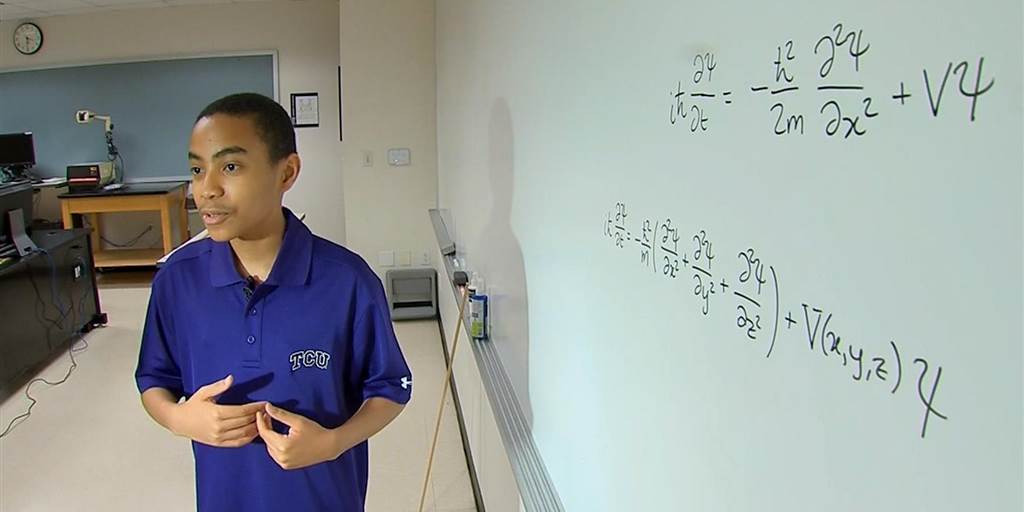 iħ ∂Ψ/∂t = -ħ²/2m ∂²Ψ/∂x² + VΨ
iħ ∂Ψ/∂t = -ħ²/m (∂²Ψ/∂x² + ∂²Ψ/∂y² + ∂²Ψ/∂z²) + V(x,y,z)Ψ
TCU